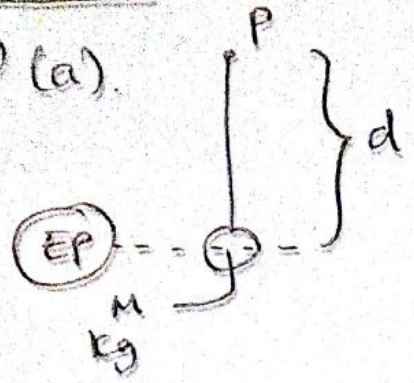 (a).
P
d
EP
M
kg